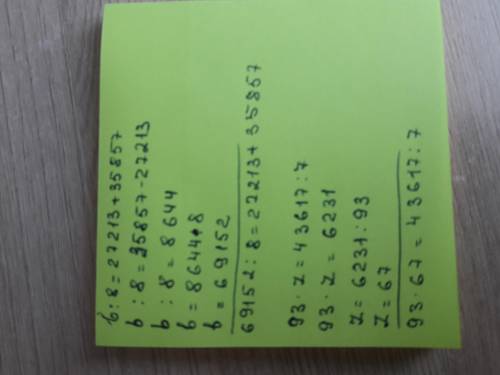 b : 8 = 27213 + 35857
b : 8 = 35857 - 27213
b : 8 = 8644
b = 8644 * 8
b = 69152
69152 : 8 = 27213 + 35857
93 · z = 43617 : 7
93 · z = 6231
z = 6231 : 93
z = 67
93 · 67 = 43617 : 7